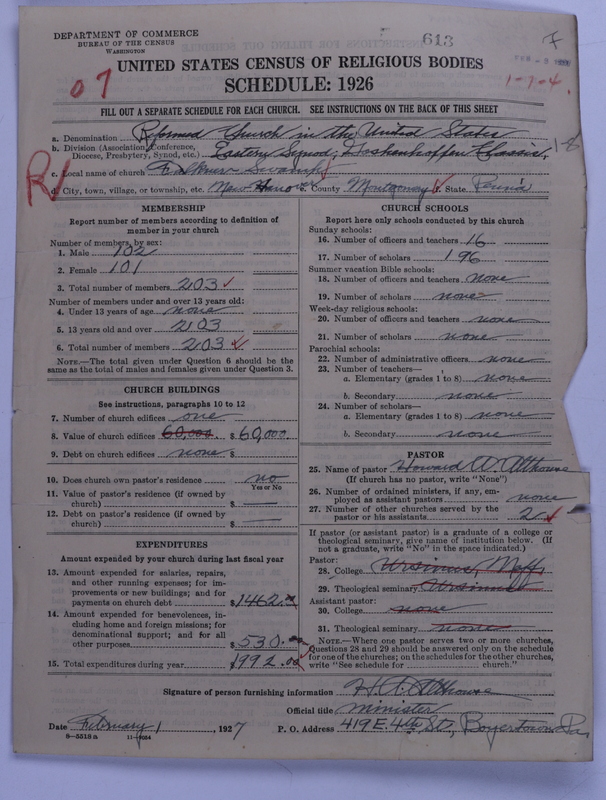 DEPARTMENT OF COMMERCE
BUREAU OF THE CENSUS
WASHINGTON
613
7
07
1-7-4.
UNITED STATES CENSUS OF RELIGIOUS BODIES
SCHEDULE: 1926
FILL OUT A SEPARATE SCHEDULE FOR EACH CHURCH. SEE INSTRUCTIONS ON THE BACK OF THIS SHEET
a. Denomination Reformed Church in the United States
b. Division (Association, Conference,
Diocese, Presbytery, Synod, etc.) Eastern Synod, Goshenhoppen Classis, 1-8
c. Local name of church Falkner Swamp
d. City, town, village, or township, etc. New Hanover County Montgomery State Penna
MEMBERSHIP
Report number of members according to definition of
member in your church
Number of members, by sex:
1. Male 102
2. Female 101
3. Total number of members 203
Number of members under and over 13 years old:
4. Under 13 years of age none
5. 13 years old and over 203
6. Total number of members 203
NOTE.—The total given under Question 6 should be the
same as the total of males and females given under Question 3.
CHURCH BUILDINGS
See instructions, paragraphs 10 to 12
7. Number of church edifices one
8. Value of church edifices 60,000. $ 60,000.
9. Debt on church edifices none $
10. Does church own pastor's residence no
Yes or No
11. Value of pastor's residence (if owned by
church) $ —
12. Debt on pastor's residence (if owned by
church) $ —
EXPENDITURES
Amount expended by your church during last fiscal year
13. Amount expended for salaries, repairs,
and other running expenses; for im-
provements or new buildings; and for
payments on church debt $ 1462.
14. Amount expended for benevolences, in-
cluding home and foreign missions; for
denominational support; and for all
other purposes $ 530.
15. Total expenditures during year $ 1992.00
CHURCH SCHOOLS
Report here only schools conducted by this church
Sunday schools:
16. Number of officers and teachers 16
17. Number of scholars 196
Summer vacation Bible schools:
18. Number of officers and teachers none
19. Number of scholars none
Week-day religious schools:
20. Number of officers and teachers none
21. Number of scholars none
Parochial schools:
22. Number of administrative officers none
23. Number of teachers—
a. Elementary (grades 1 to 8) none
b. Secondary none
24. Number of scholars—
a. Elementary (grades 1 to 8) none
b. Secondary none
PASTOR
25. Name of pastor Howard A. Althouse
(If church has no pastor, write "None")
26. Number of ordained ministers, if any, em-
ployed as assistant pastors none
27. Number of other churches served by the
pastor or his assistants 2
If pastor (or assistant pastor) is a graduate of a college or
theological seminary, give name of institution below. (If
not a graduate, write "No" in the space indicated.)
Pastor:
28. College Ursinus,
29. Theological seminary Ursinus
Assistant pastor:
30. College none
31. Theological seminary none
NOTE.—Where one pastor serves two or more churches,
Questions 28 and 29 should be answered only on the schedule
for one of the churches; on the schedules for the other churches,
write "See schedule for church."
Signature of person furnishing information H. A. Althouse
Official title Minister
Date February 1, 1927 P. O. Address 419 E. 4th St., Boyertown Pa.
8-5318 a 11-9034